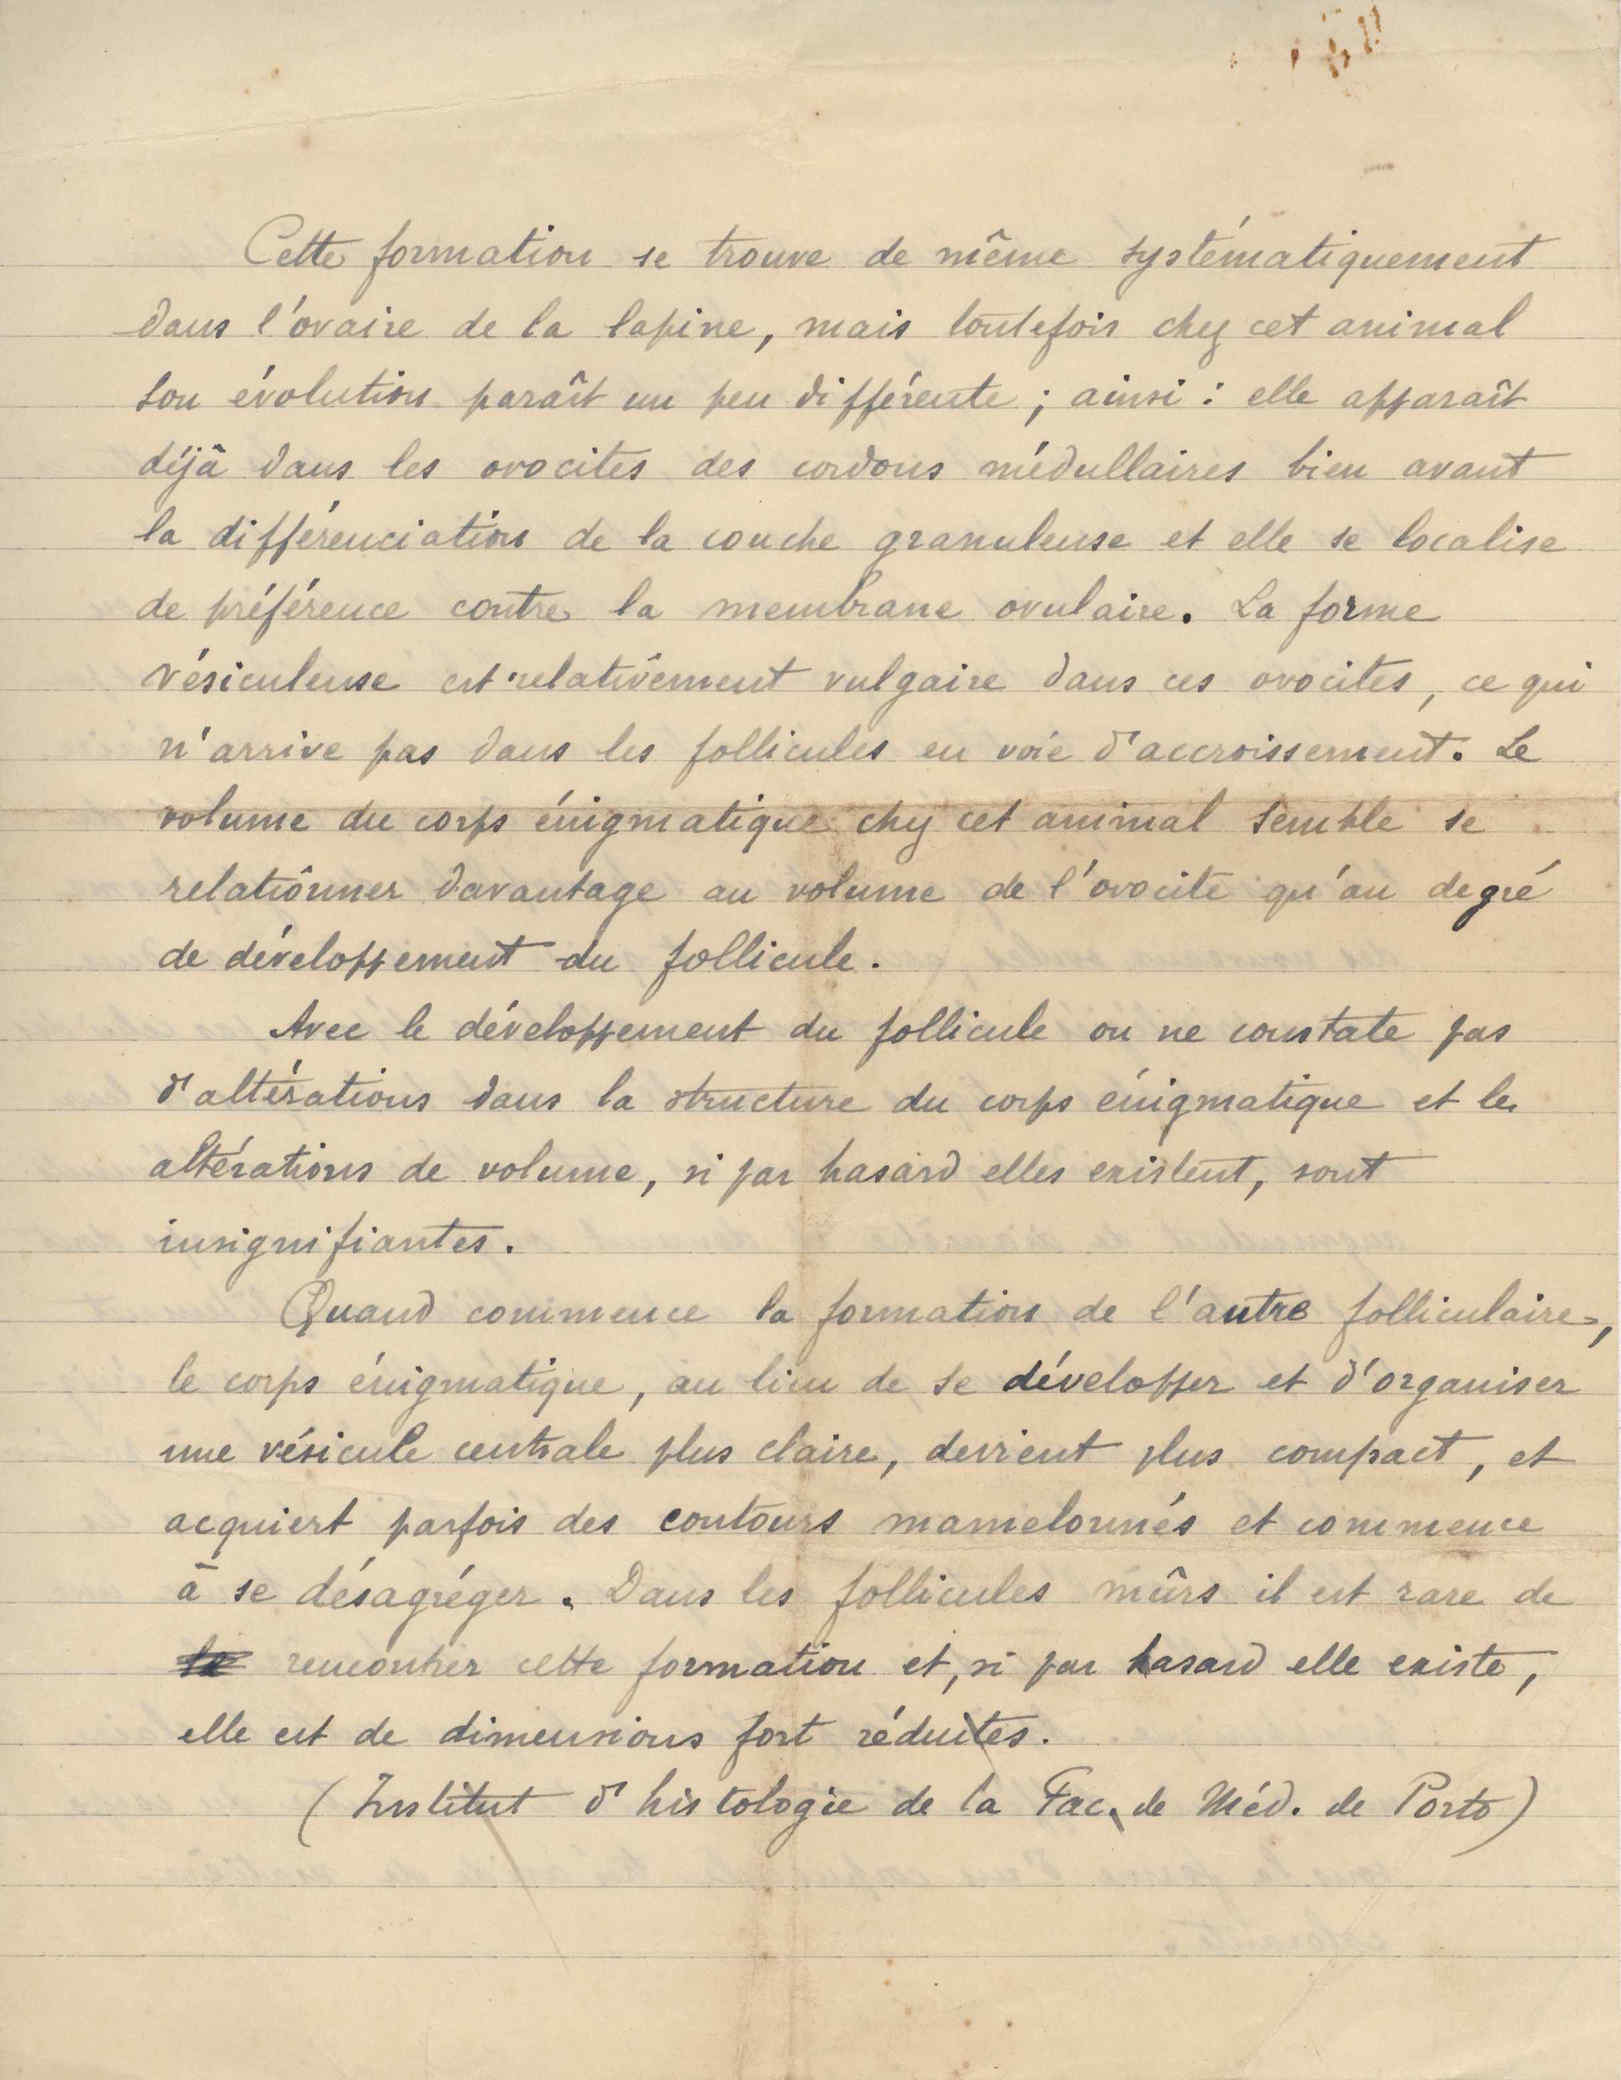 Cette formation se trouve de même systématiquement
dans l'ovaire de la lapine, mais toutefois chez cet animal
son évolution paraît un peu différente ; ainsi : elle apparaît
déjà dans les ovocites des cordons médullaires bien avant
la différenciation de la couche granuleuse et elle se localise
de préférence contre la membrane ovulaire. La forme
vésiculeuse est relativement vulgaire dans ces ovocites, ce qui
n'arrive pas dans les follicules en voie d'accroissement. Le
volume du corps énigmatique chez cet animal semble se
relationner davantage au volume de l'ovocite qu'au degré
de développement du follicule.
Avec le développement du follicule on ne constate pas
d'altérations dans la structure du corps énigmatique et les
altérations de volume, si par hasard elles existent, sont
insignifiantes.
Quand commence la formation de l'antre folliculaire,
le corps énigmatique, au lieu de se développer et d'organiser
une vésicule centrale plus claire, devient plus compact, et
acquiert parfois des contours mamelonnés et commence
à se désagréger. Dans les follicules mûrs il est rare de
rencontrer cette formation et, si par hasard elle existe,
elle est de dimensions fort réduites.
(Institut d'histologie de la Fac. de Méd. de Porto)